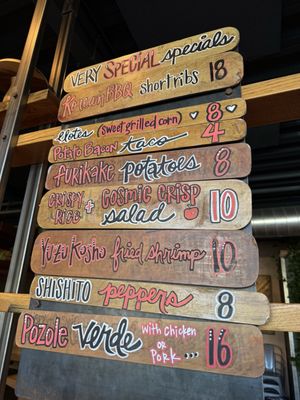 VERY SPECIAL specials
Korean BBQ shortribs 18
Elotes (sweet grilled corn) 8
Potato Bacon taco 4
Furikake potatoes 8
Crispy Rice + Cosmic Crisp salad 10
Yuzu Kosho fried shrimp 10
SHISHITO peppers 8
Pozole verde with chicken or Pork... 16